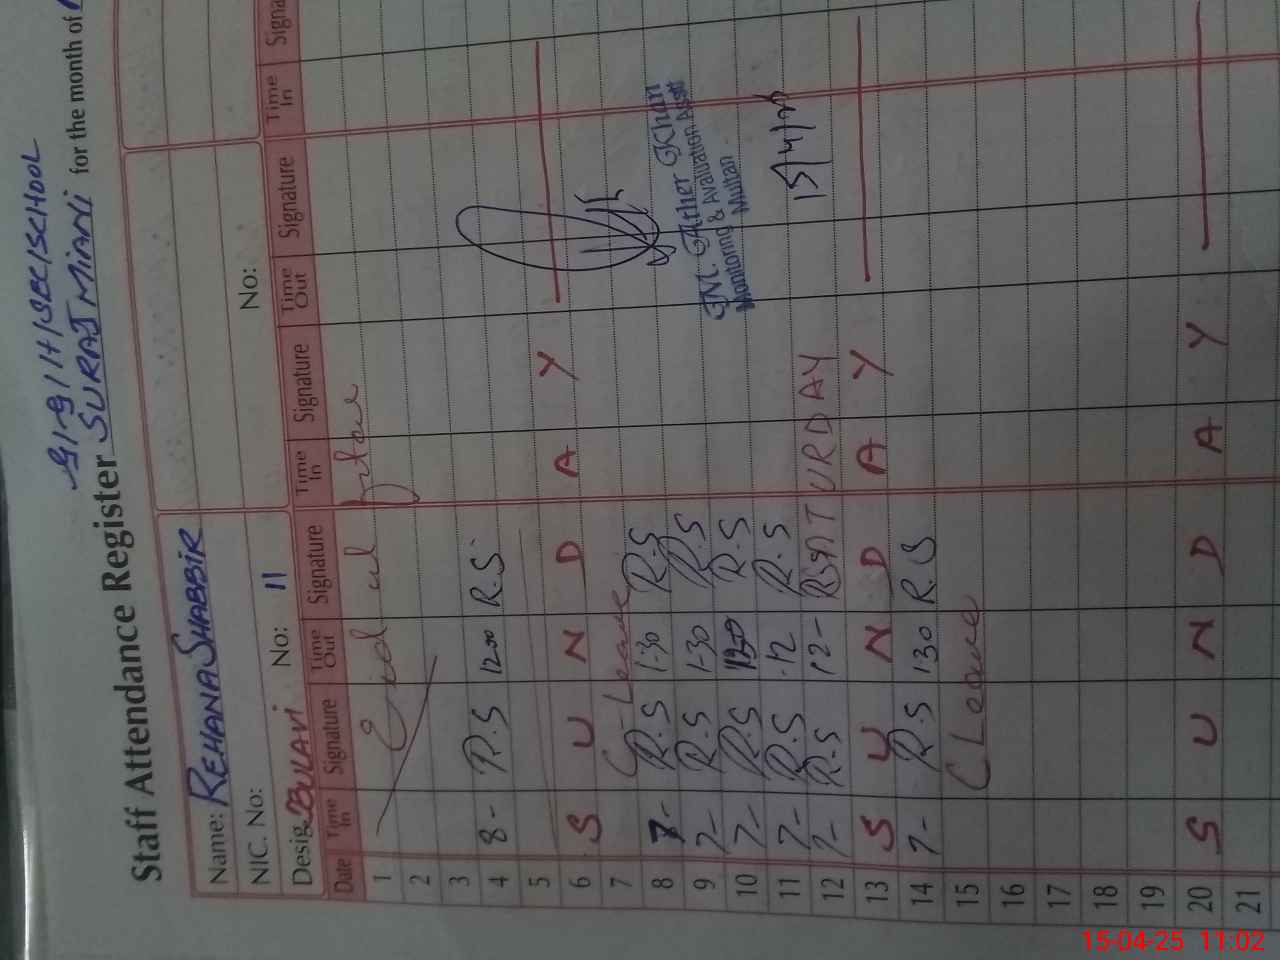 G/G/H/SEC/SCHOOL
Staff Attendance Register SURAJ MIANI for the month of
Name: REHANA SHABBIR
NIC. No:
No:
Desig: BULAVI No: 11
Date Time In Signature Time Out Signature Time In Signature Time Out Signature Time In
1 Eid ul
2
3
4 8- R.S 1200 R.S
5
6 SUNDAY
7 C-Leave
8 7- R.S 1-30 R.S
9 7- R.S 1-30 R.S
10 7- R.S R.S
11 7- R.S 12 R.S
12 7- R.S 12- R.S SATURDAY
13 SUNDAY
14 7- R.S 130 R.S
15 C Leave
16
17
18
19
20 SUNDAY
21
M. Ather Khan
Monitoring & Avaluation Asstt
Multan
15/4/25
15-04-25 11:02